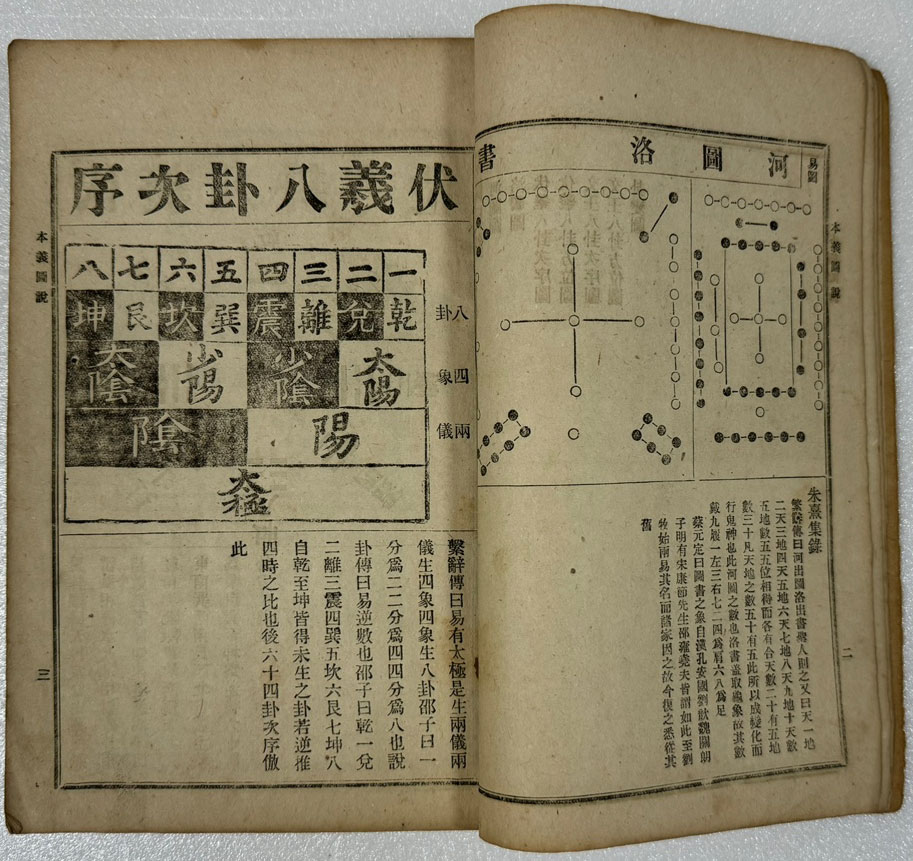 易圖
河圖
洛書
本義圖說
朱熹集錄
繫辭傳曰河出圖洛出書聖人則之又曰天一地
二天三地四天五地六天七地八天九地十天數
五地數五五位相得而各有合天數二十有五地
數三十凡天地之數五十有五此所以成變化而
行鬼神也此河圖之數也洛書蓋取龜象故其數
戴九履一左三右七二四為肩六八為足
蔡元定曰圖書之象自漢孔安國劉歆魏關朗
子明有宋康節先生邵雍堯夫皆謂如此至劉
牧始兩易其名而諸家因之故今復之悉從其
舊
二
伏羲八卦次序
一二三四五六七八
八卦
乾兌離震巽坎艮坤
四象
太陽少陰少陽太陰
兩儀
陽陰
太極
繫辭傳曰易有太極是生兩儀兩
儀生四象四象生八卦邵子曰一
分為二二分為四四分為八也說
卦傳曰易逆數也邵子曰乾一兌
二離三震四巽五坎六艮七坤八
自乾至坤皆得未生之卦若逆推
四時之比也後六十四卦次序倣
此
本義圖說
三